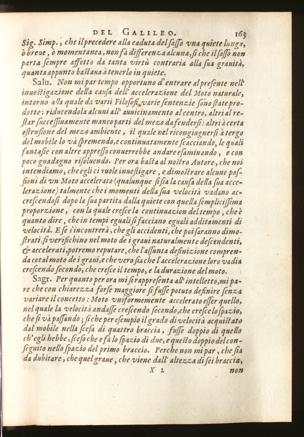 DEL GALILEO. 163
Sig. Simp., che il precedere alla caduta del sasso vna quiete lunga,
ò breue, ò momentanea, non fà differenza alcuna, sì che il sasso non
parta sempre affetto da tanta virtù contraria alla sua grauità,
quanta appunto bastaua à tenerlo in quiete.
Salu. Non mi par tempo opportuno d'entrare al presente nell'
inuestigazione della causa dell' accelerazione del Moto naturale,
intorno alla quale da varii Filosofi varie sentenzie sono state pro-
dotte: riducendola alcuni all' auuicinamento al centro, altri al re-
star successiuamente manco parti del mezo da fendersi: altri à certa
estrusione del mezo ambiente, il quale nel ricongiugnersi à tergo
del mobile lo và premendo, e continuatamente scacciando, le quali
fantasie con altre appresso conuerrebbe andare esaminando, e con
poco guadagno risoluendo. Per ora basta al nostro Autore, che noi
intendiamo, che egli ci vuole inuestigare, e dimostrare alcune pas-
sioni di vn Moto accelerato (qualunque si sia la causa della sua acce-
lerazione) talmente che i momenti della sua velocità vadano ac-
crescendosi dopo la sua partita dalla quiete con quella semplicissima
proporzione, con la quale cresce la continuazion del tempo, che è
quanto dire, che in tempi eguali si facciano eguali additamenti di
velocità. E se s'incontrerà, che gli accidenti, che poi saranno dimo-
strati si verifichino nel moto de i graui naturalmente descendenti,
& accelerati, potremo reputare, che l'assunta definizione compren-
da cotal moto de i graui, e che vero sia che l'accelerazione loro vadia
crescendo secondo, che cresce il tempo, e la durazione del moto.
Sagr. Per quanto per ora mi si rappresenta all'intelletto, mi pa-
re che con chiarezza forse maggiore si fusse potuto definire senza
variare il concetto: Moto vniformemente accelerato esser quello,
nel quale la velocità andasse crescendo secondo, che cresce lo spazio,
che si và passando; sì che per esempio il grado di velocità acquistato
dal mobile nella scesa di quattro braccia, fusse doppio di quello
ch'egli hebbe, sceso che e fù lo spazio di due, e questo doppio del con-
seguito nello spazio del primo braccio. Perche non mi par, che sia
da dubitare, che quel graue, che viene dall'altezza di sei braccia,
X 2 non